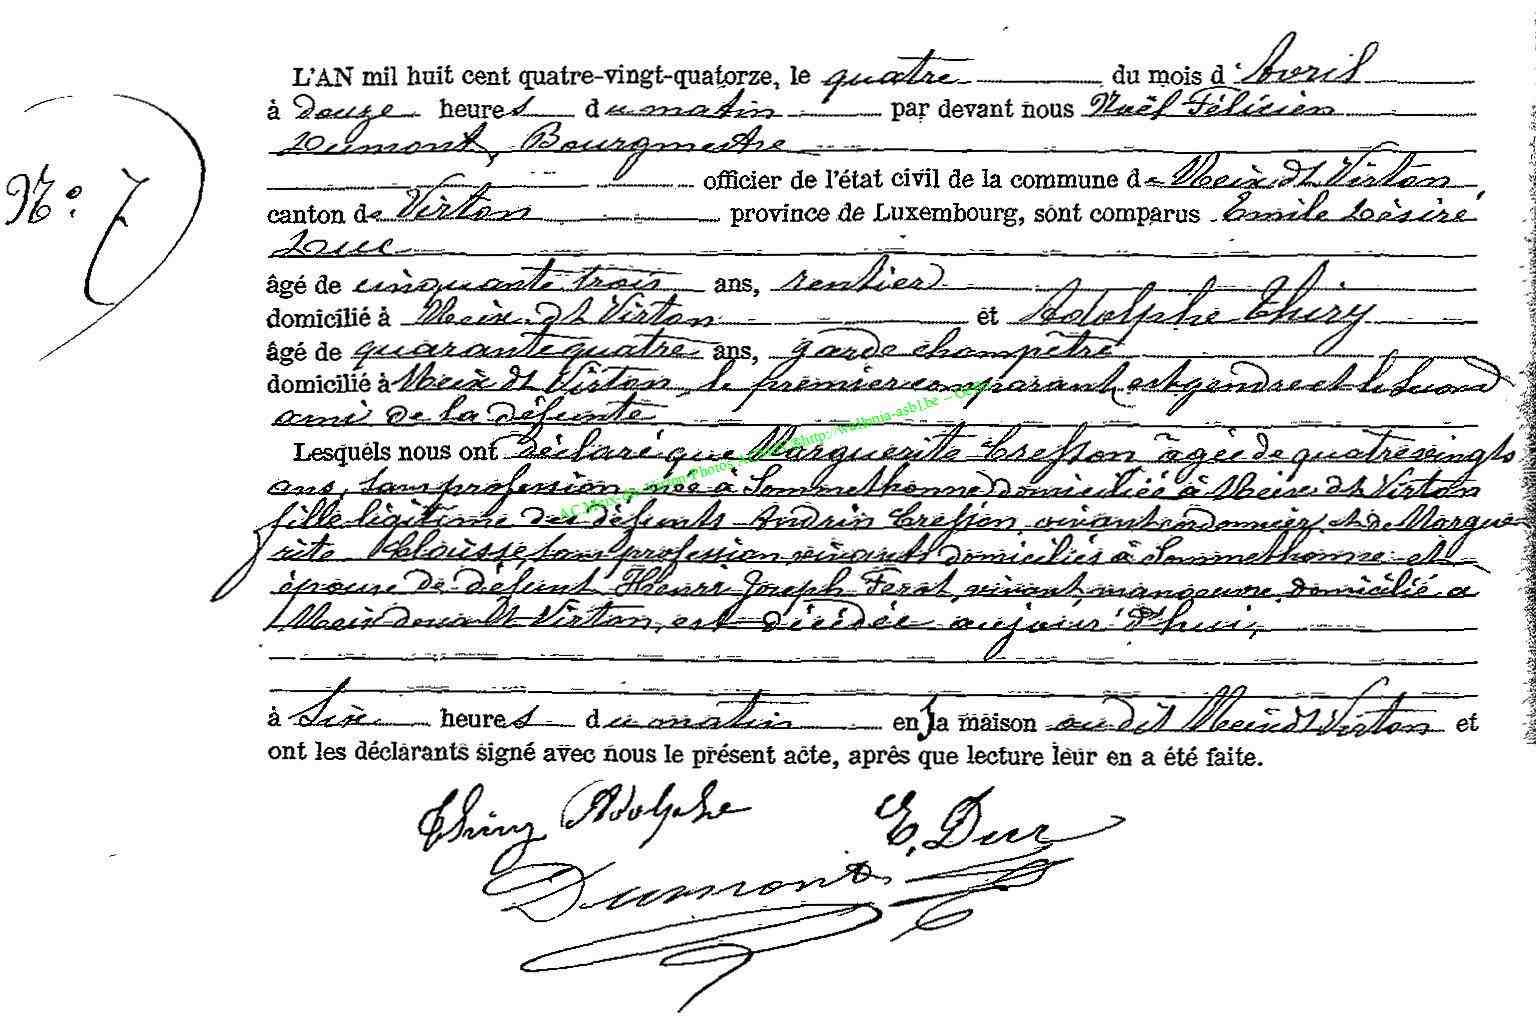 L'AN mil huit cent quatre-vingt-quatorze, le quatre du mois d'Avril
à douze heures du matin par devant nous Noël Félicien
Dumont, Bourgmestre
officier de l'état civil de la commune de Meix dt Virton
canton de Virton province de Luxembourg, sont comparus Emile Désiré
Duc
âgé de cinquante trois ans, rentier
domicilié à Meix dt Virton et Adolphe Thiry
âgé de quarante quatre ans, garde champêtre
domicilié à Meix dt Virton, le premier comparant est gendre et le second
ami de la défunte
Lesquels nous ont déclaré que Marguerite Cresson âgée de quatre vingts
ans, sans profession née à Sommethonne domiciliée à Meix dt Virton
fille légitime des défunts Andrin Cresson vivant cordonnier et de Margue
rite sans profession vivants domiciliés à Sommethonne et
épouse de défunt Henri Joseph Ferot, vivant manoeuvre domicilié à
Meix devant Virton, est décédée aujourd'hui,
à Six heures du matin en sa maison au dit Meix dt Virton et
ont les déclarants signé avec nous le présent acte, après que lecture leur en a été faite.
No: 7
Thiry Adolphe E. Duc
Dumont